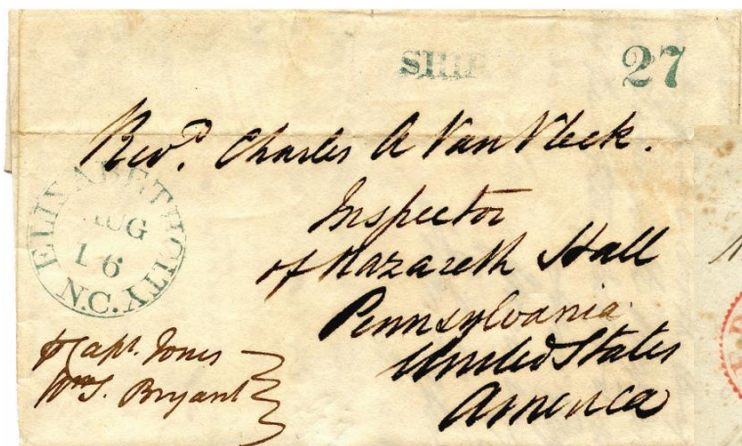 SHIP 27
Revd. Charles A Van Vleck.
Inspector
of Nazareth Hall
Pennsylvania
United States
America
ELIZABETH CITY N.C.
AUG
16
Capt. Jones
Wm S. Bryant